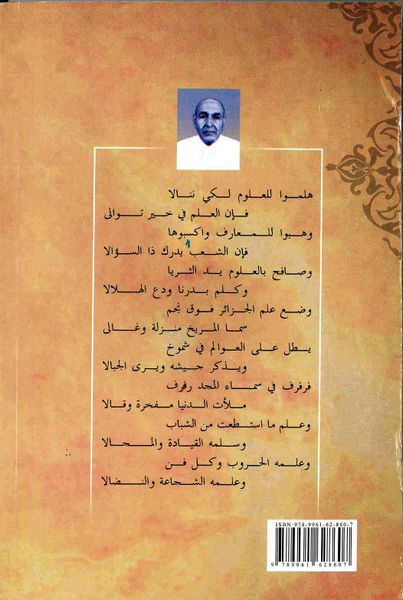 هلموا للعلوم لكي ننالا
فإن العلم في خير توالى
وهبوا للمعارف واكسبوها
فإن الشعب يدرك ذا السؤالا
وصافح بالعلوم يد الثريا
وكلم بدرنا ودع الهلالا
وضع علم الجزائر فوق نجم
سما المريخ منزلة وغالى
يطل على العوالم في شموخ
ويذكر جيشه ويرى الجبالا
فرفرف في سماء المجد رفرف
ملأت الدنيا مفخرة وقالا
وعلم ما استطعت من الشباب
وسلمه القيادة والمحالا
وعلمه الحروب وكل فن
وعلمه الشجاعة والنضالا
ISBN 978-9961-62-860-7
9 789961 628607